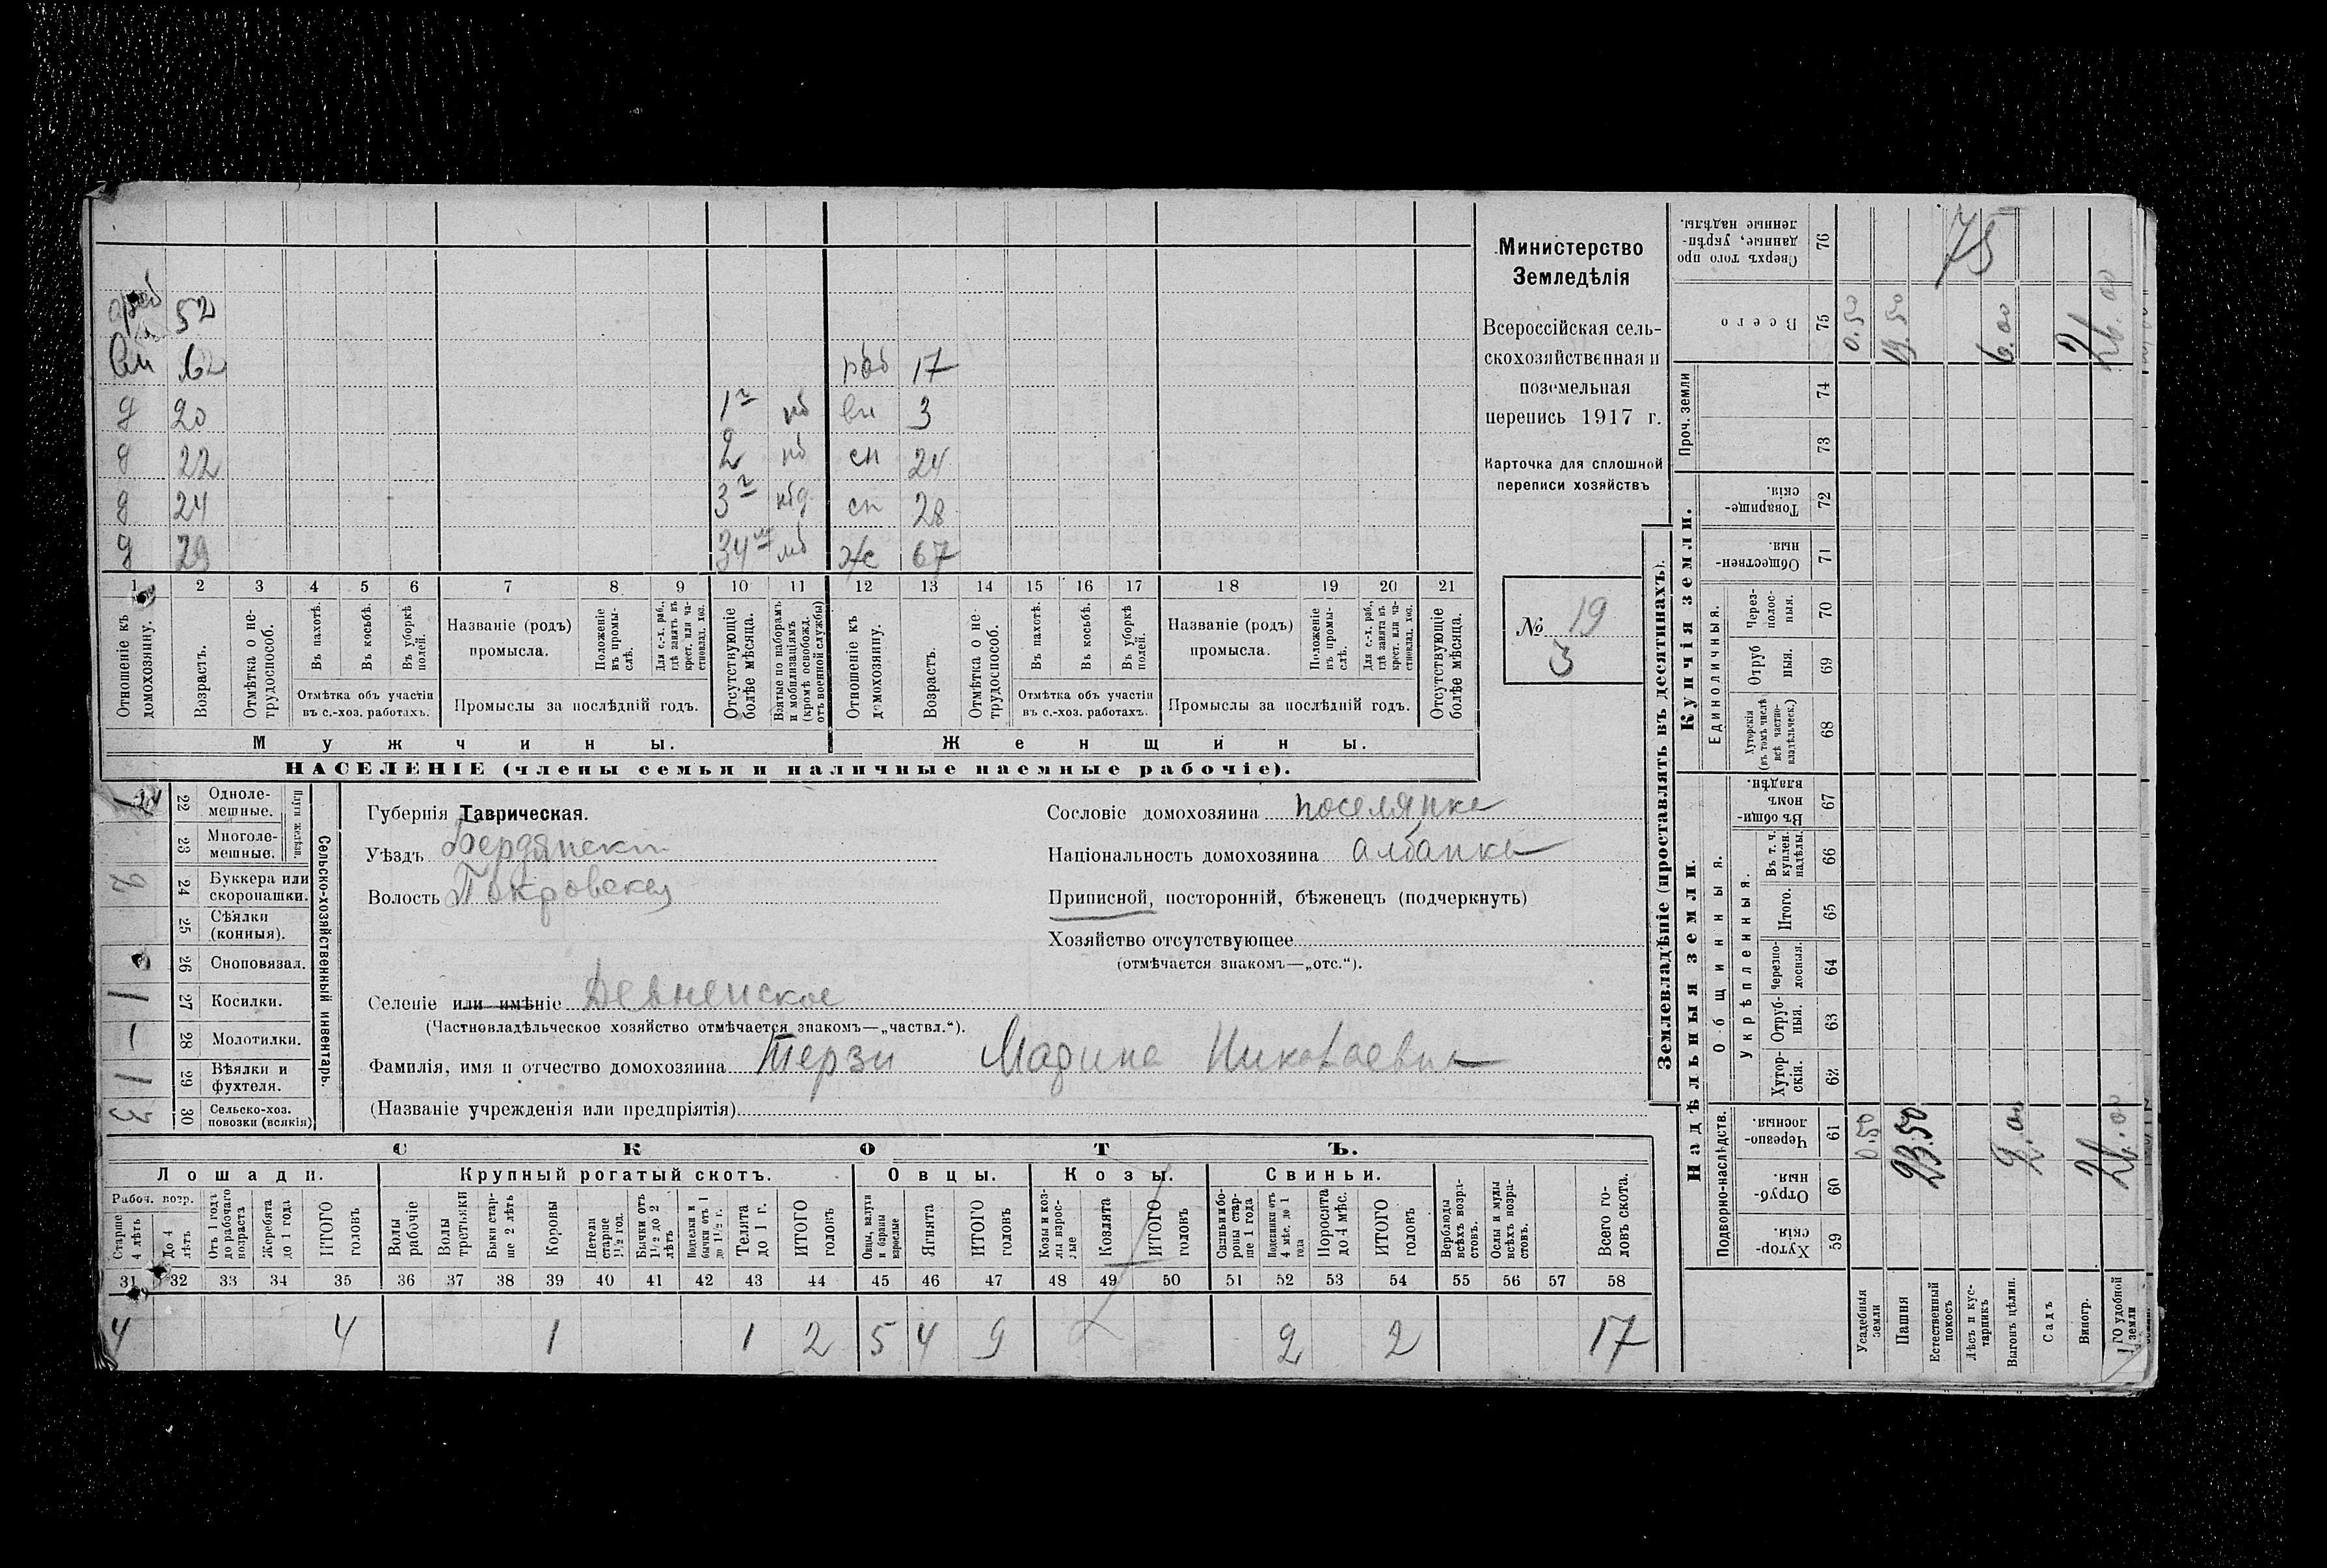 52
62 раб 17
д 20 1 нб вн 3
д 22 2 нб сн 24
д 24 3 сн 28
д 29 34 нб ж 67
1 2 3 4 5 6 7 8 9 10 11 12 13 14 15 16 17 18 19 20 21
Отношеніе къ домохозяину.
Возрастъ.
Отмѣтка о нетрудоспособ.
Въ пахотѣ.
Въ косьбѣ.
Въ уборкѣ полей.
Отмѣтка объ участіи въ с.-хоз. работахъ.
Названіе (родъ) промысла.
Положеніе въ промыслѣ.
Для с.-х. раб., гдѣ занятъ въ крест. или частновлад. хоз.
Промыслы за послѣдній годъ.
Отсутствующіе болѣе мѣсяца.
Взятые по наборамъ и мобилизаціямъ (кромѣ освобожд. отъ военной службы)
Отношеніе къ домохозяину.
Возрастъ.
Отмѣтка о нетрудоспособ.
Въ пахотѣ.
Въ косьбѣ.
Въ уборкѣ полей.
Отмѣтка объ участіи въ с.-хоз. работахъ.
Названіе (родъ) промысла.
Положеніе въ промыслѣ.
Для с.-х. раб., гдѣ занята въ крест. или частновлад. хоз.
Промыслы за послѣдній годъ.
Отсутствующіе болѣе мѣсяца.
Мужчины. Женщины.
НАСЕЛЕНІЕ (члены семьи и наличные наемные рабочіе).
Министерство
Земледѣлія
Всероссійская сель-
скохозяйственная и
поземельная
перепись 1917 г.
Карточка для сплошной
переписи хозяйствъ
№ 19
3
Сельско-хозяйственный инвентарь.
Плуги желѣз.
22 Одноле-мешные.
23 Многоле-мешные.
2 24 Буккера или скоропашки.
25 Сѣялки (конныя).
26 Сноповязал.
1 27 Косилки.
– 28 Молотилки.
1 29 Вѣялки и фухтеля.
3 30 Сельско-хоз. повозки (всякія)
Губернія Таврическая.
Уѣздъ Бердянски
Волость Покровская
Селеніе или имѣніе Девненское
(Частновладѣльческое хозяйство отмѣчается знакомъ—„частвл.“).
Фамилія, имя и отчество домохозяина Терзи Марина Николаевна
(Названіе учрежденія или предпріятія)
Сословіе домохозяина поселянка
Національность домохозяина албанка
Приписной, посторонній, бѣженецъ (подчеркнуть)
Хозяйство отсутствующее
(отмѣчается знакомъ—„отс.“).
СКОТЪ.
Лошади. Крупный рогатый скотъ. Овцы. Козы. Свиньи.
Рабоч. возр.
Старше 4 лѣтъ
До 4 лѣтъ
Отъ 1 годъ до рабочаго возраста
Жеребята до 1 года
ИТОГО головъ
Волы рабочіе
Волы третьяки
Быки старше 2 лѣтъ
Коровы
Нетели старше 1½ год.
Бычки отъ 1½ до 2 лѣтъ
Подтелки и бычки отъ 1 до 1½ г.
Телята до 1 г.
ИТОГО головъ
Овцы, валухи и бараны взрослые
Ягнята
ИТОГО головъ
Козы и козлы взрослые
Козлята
ИТОГО головъ
Свиньи и боровы старше 1 года
Подсвинки отъ 4 мѣс. до 1 года
Поросята до 4 мѣс.
ИТОГО головъ
Верблюды всѣхъ возрастовъ.
Ослы и мулы всѣхъ возрастовъ.
Всего головъ скота.
31 32 33 34 35 36 37 38 39 40 41 42 43 44 45 46 47 48 49 50 51 52 53 54 55 56 57 58
4 4 1 1 2 5 4 9 2 2 17
Землевладѣніе (проставлять въ десятинахъ).
Надѣльныя земли. Купчія земли. Проч. земли
Подворно-наслѣдств.
Общинныя.
Укрѣпленныя.
Единоличныя.
Хуторскія 59
Отрубныя 60
Черезполосныя. 61
Хуторскія. 62
Отрубныя. 63
Черезполосныя. 64
Итого. 65
Въ т. ч. куплен. надѣлы. 66
Въ общинномъ владѣн. 67
Хуторскія (въ томъ числѣ всѣ частновладѣльческ.) 68
Отрубныя. 69
Черезполосныя. 70
Общественныя. 71
Товарищескія. 72
73
74
Всего 75
Сверхъ того проданные, укрѣпленные надѣлы. 76
Усадебныя земли 0.50 0.50
Пашня 23.50 19.50
Естественный покосъ
Лѣсъ и кустарникъ
Выгонъ цѣлин. 2.00 6.00
Садъ
Виногр.
удобной земли 26.00 26.00
75